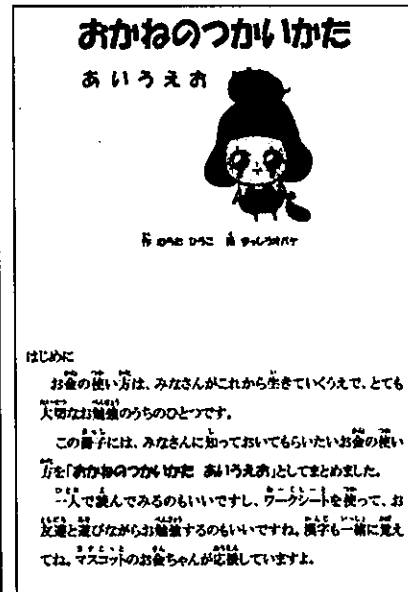 おかねのつかいかた
あいうえお
作 ひろこ 画
はじめに
お金の使い方は、みなさんがこれから生きていくうえで、とても
大切なお勉強のうちのひとつです。
この冊子には、みなさんに知っておいてもらいたいお金の使い
方を「おかねのつかいかた あいうえお」としてまとめました。
一人で読んでみるのもいいですし、ワークシートを使って、お
友達と遊びながらお勉強するのもいいですね。漢字も一緒に覚え
てね。マスコットのお金ちゃんが応援していますよ。